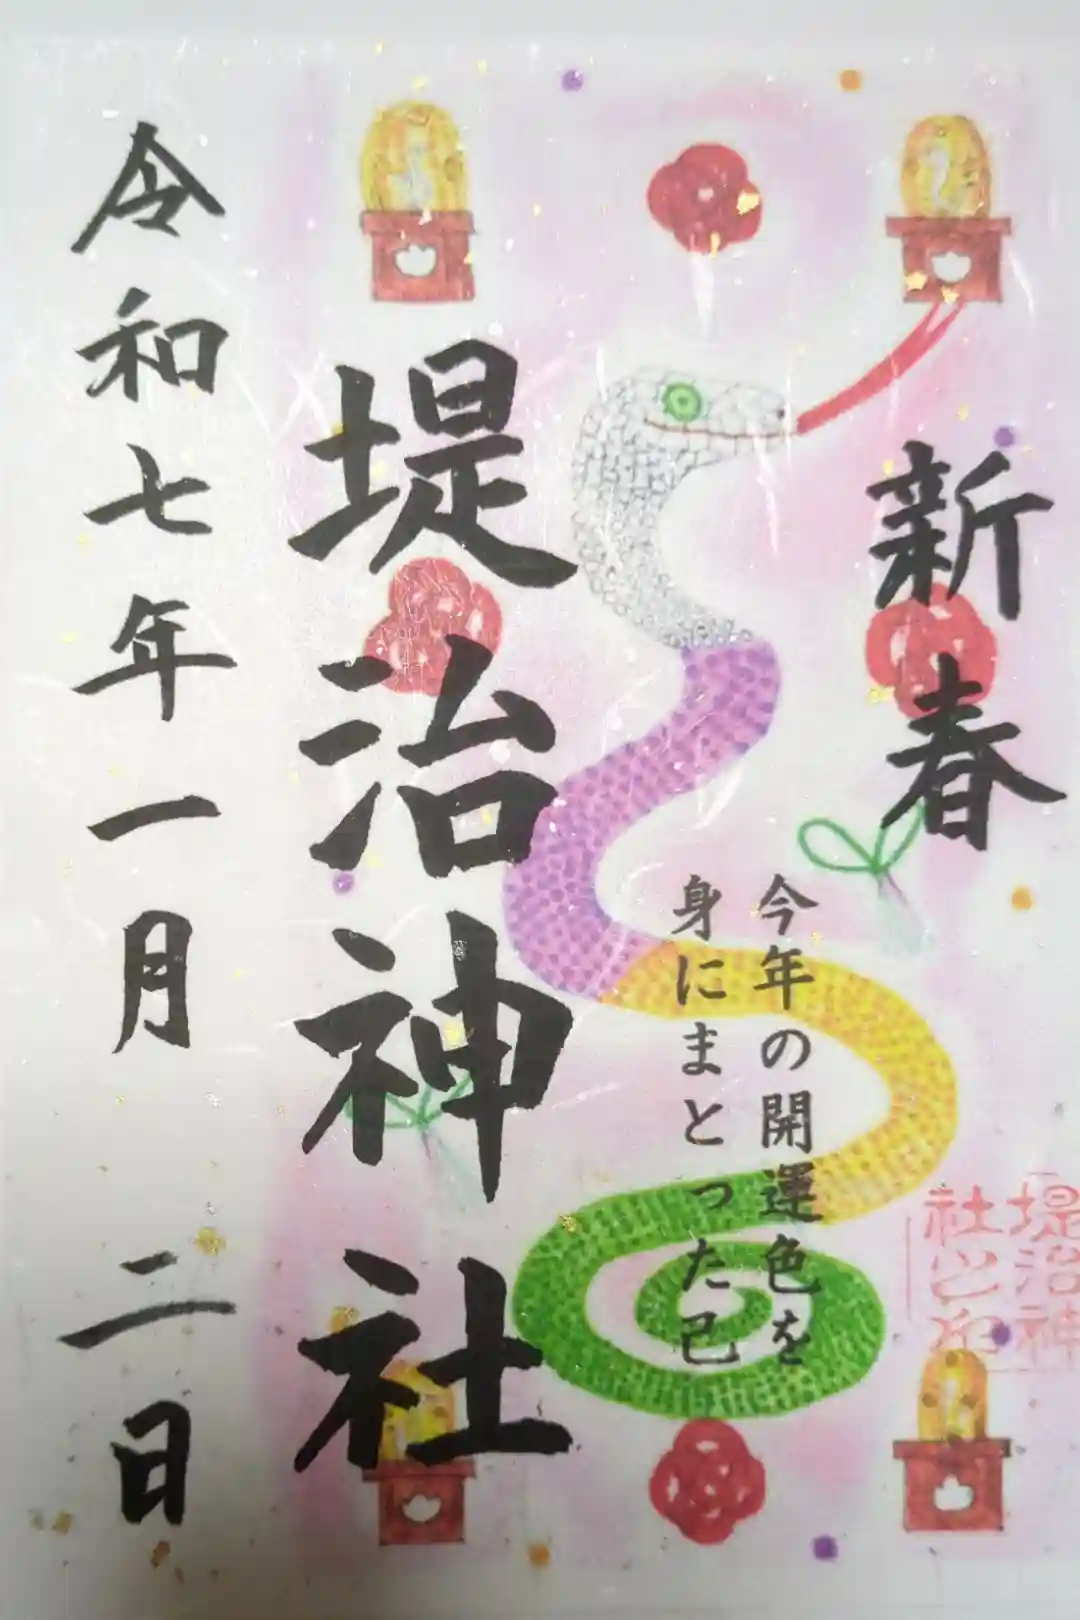 新春
今年の開運色を
身にまとった巳
堤治神社
令和七年一月二日
堤治神
社之印